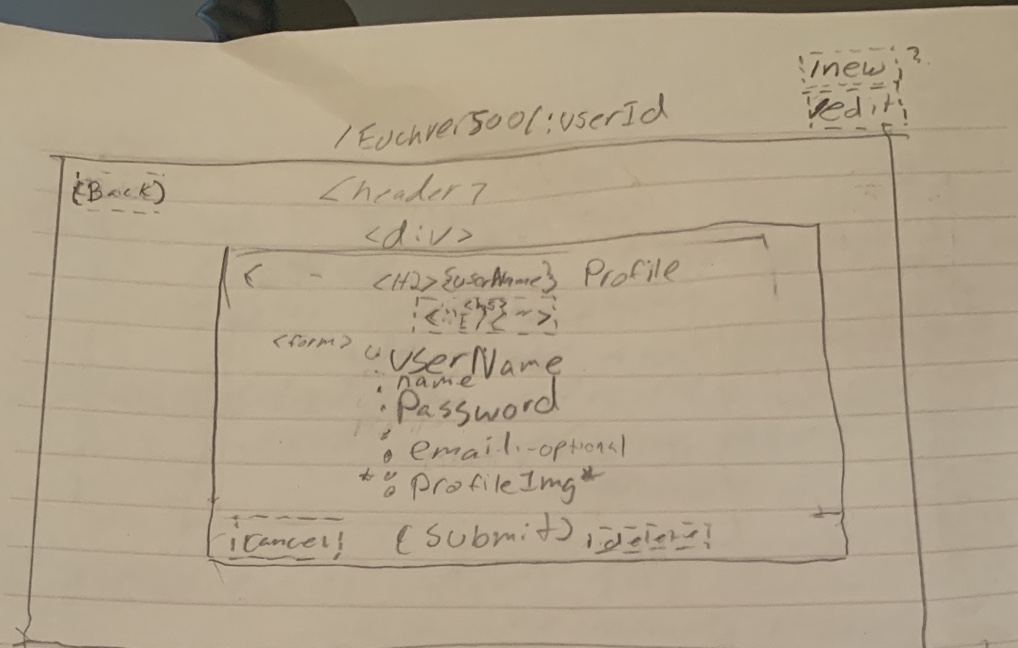 /new ?
/edit
/Euchre500/:userId
(Back) <header>
<div>
< - <H2>{userName} Profile
<h5>
<form> userName
name
Password
email - optional
* ProfileImg *
cancel (submit) delete